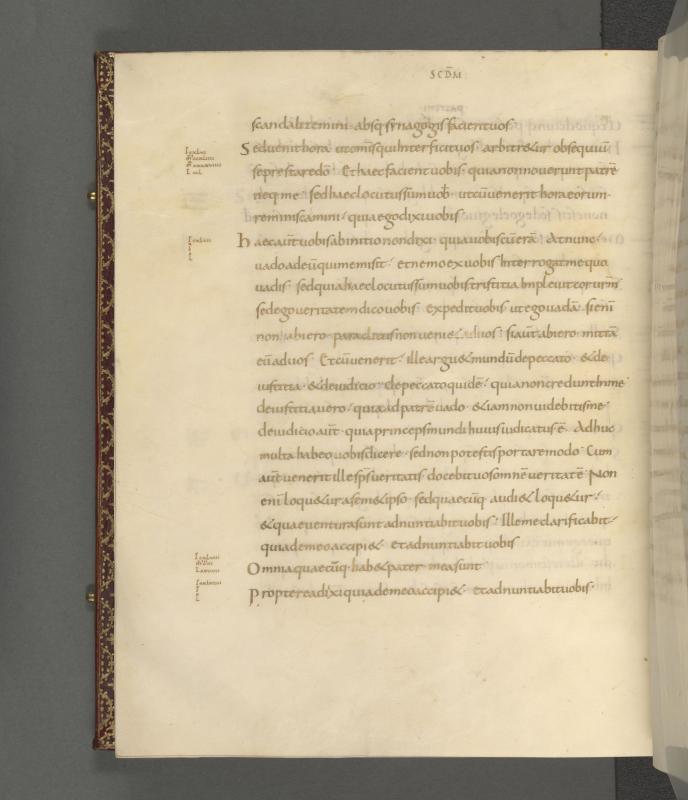 SCDM
scandalizemini· absq; synagogis facient uos·
Sed uenit hora ut omīs qui interficit uos· arbitretur obsequiū
se prestare dō· Et haec facient uobis· quia non nouerunt patrē
neq; me· sed haec locutus sum uob̄· ut cū uenerit hora eorum·
reminiscamini· quia ego dixi uobis·
haec aut̄ uobis ab initio non dixi· quia uobiscū erā· At nunc·
uado ad eū qui me misit· et nemo ex uobis interrogat me quo
uadis· sed quia haec locutus sum uobis tristitia impleuit cor urm̄·
sed ego ueritatem dico uobis· expedit uobis ut ego uadā· si enī
non abiero paraclitus non ueniet ad uos· si aut̄ abiero mittā
eū ad uos· Et cū uenerit· ille arguet mundū de peccato· et de
iustitia· et de iudicio· de peccato quidē· quia non credunt in me·
de iustitia uero· quia ad patrē uado· et iam non uidebitis me·
de iudicio aut̄· quia princeps mundi huius iudicatus ē· Adhuc
multa habeo uobis dicere· sed non potestis portare modo· Cum
aut̄ uenerit ille sp̄s ueritatis· docebit uos omnē ueritatē· Non
enī loquetur a semetipso· sed quaecūq; audiet loquetur·
et quae uentura sunt adnuntiabit uobis· Ille me clarificabit·
quia de meo accipiet· et adnuntiabit uobis
Omnia quaecūq; habet pater mea sunt
Propterea dixi quia de meo accipiet· et adnuntiabit uobis·